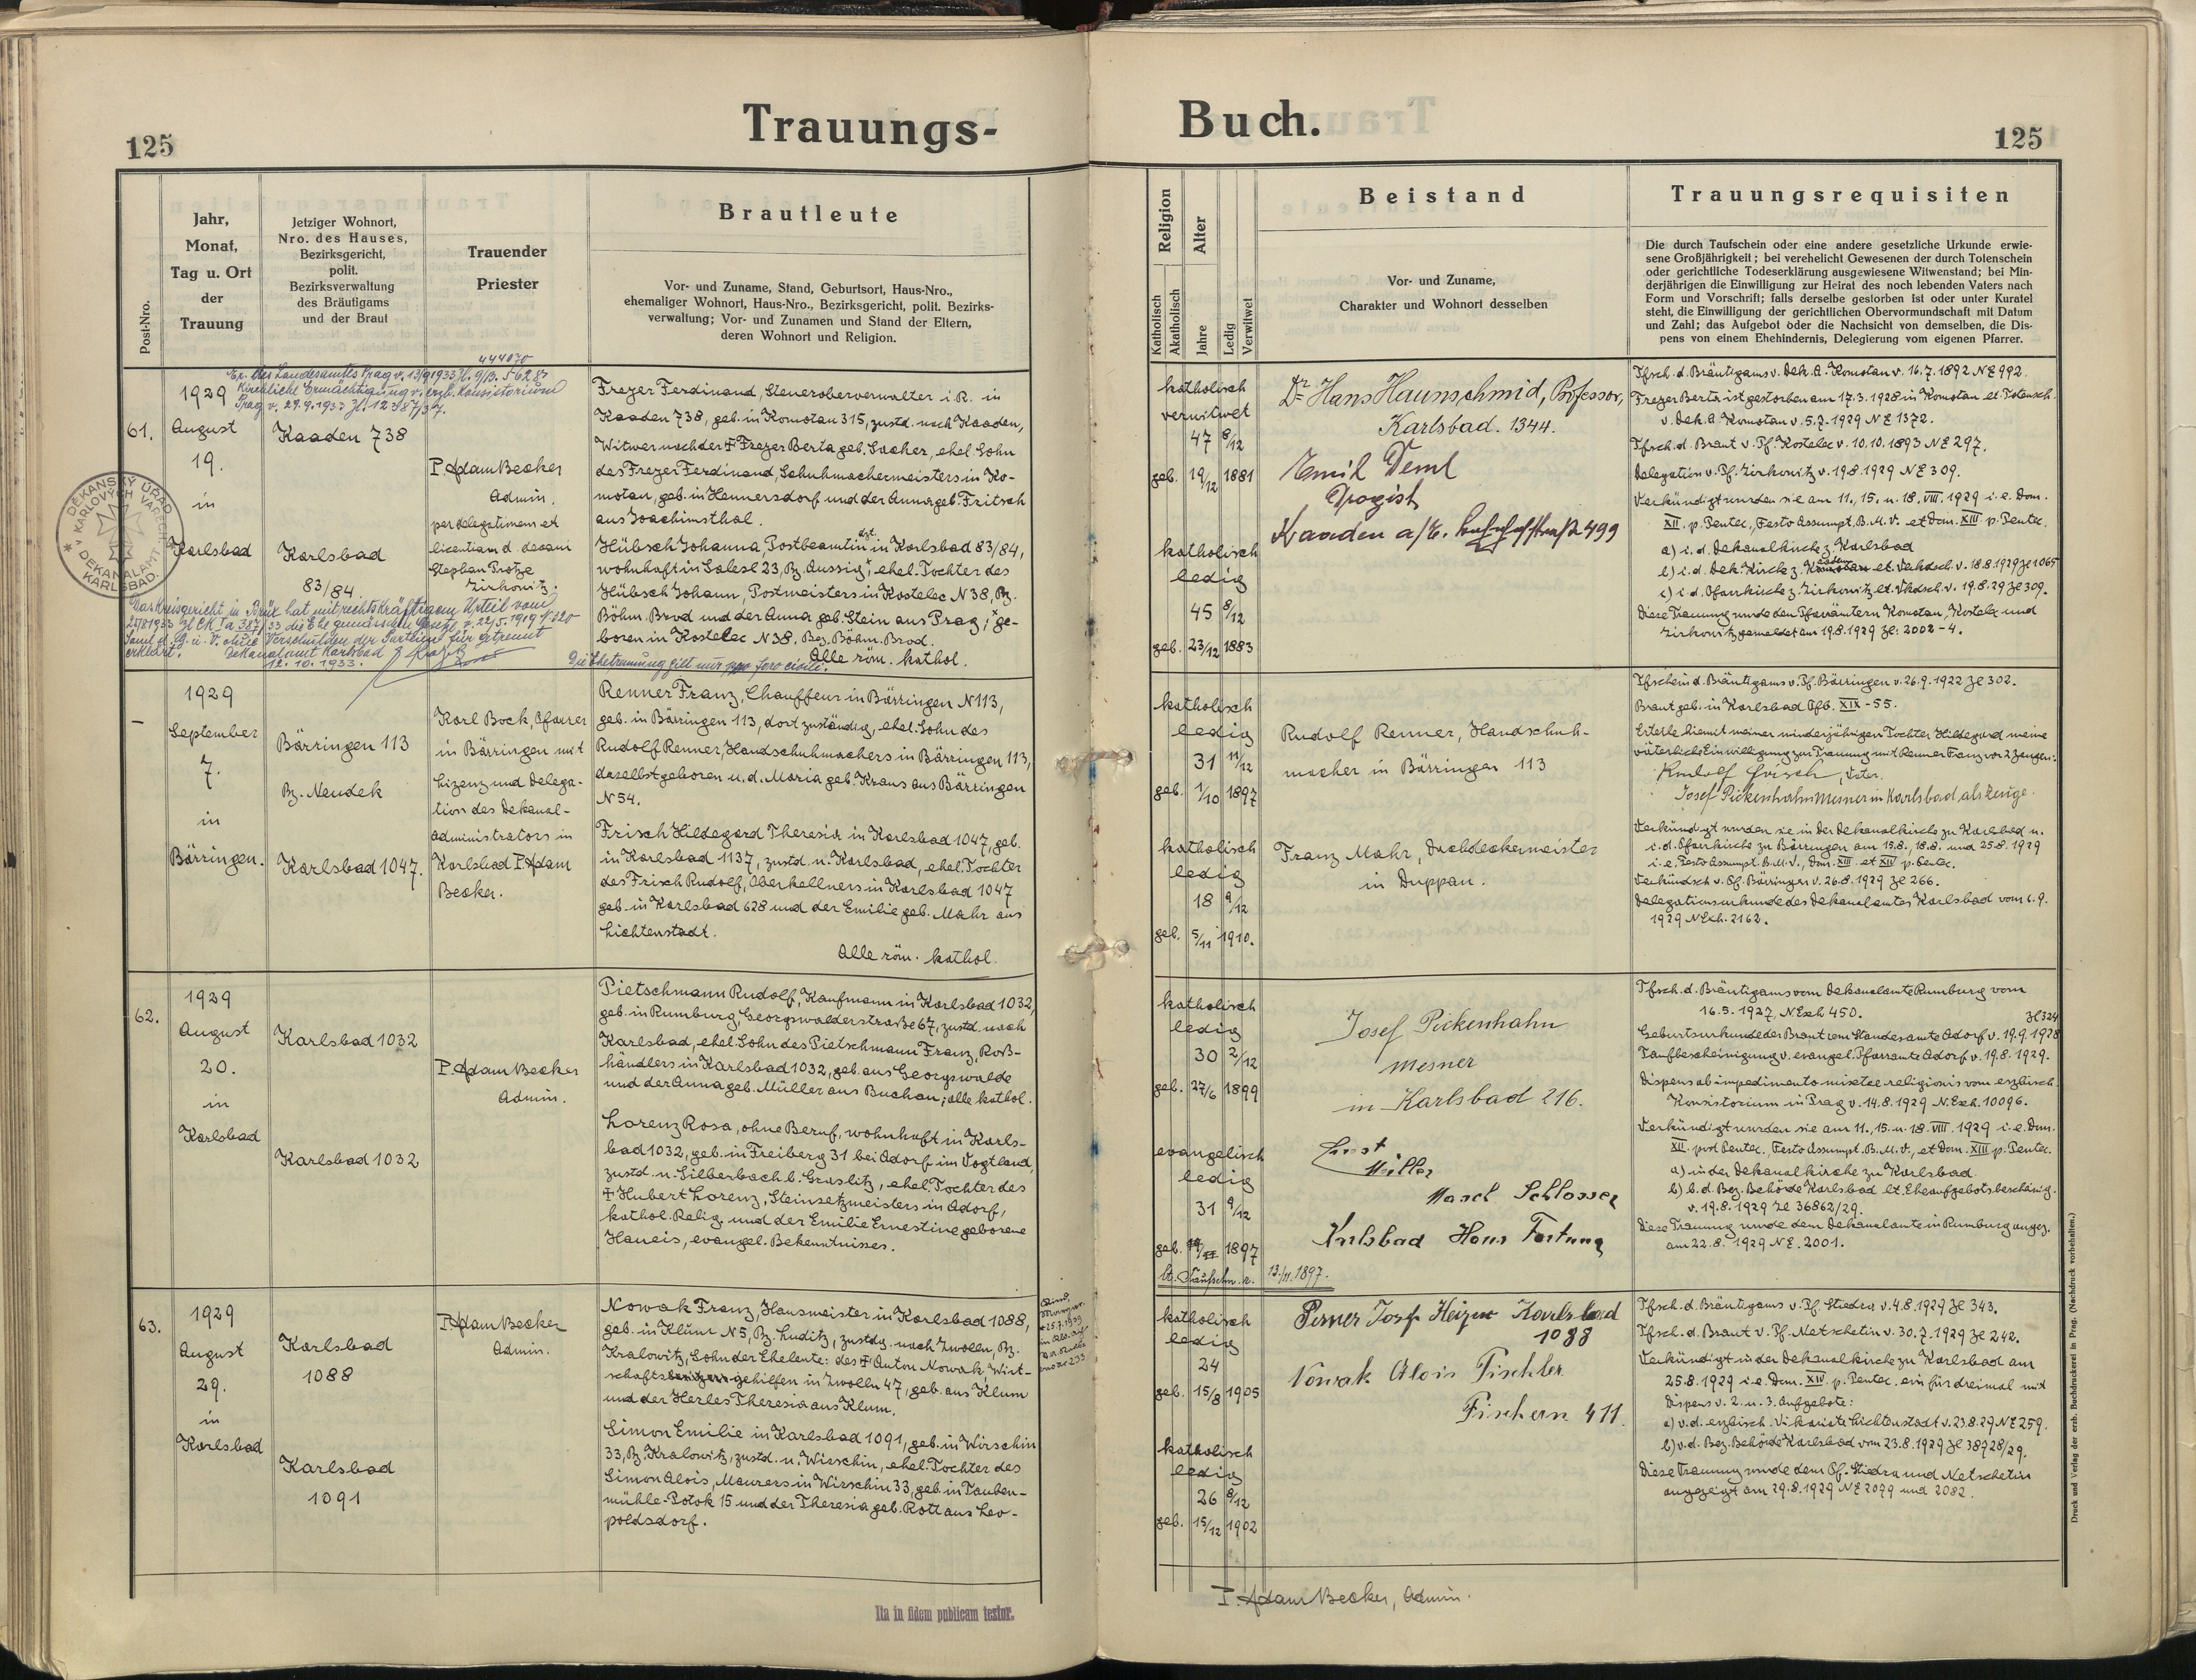 Trauungs-
Buch.
125
125
Post-Nro.
Jahr,
Monat,
Tag u. Ort
der
Trauung
Jetziger Wohnort,
Nro. des Hauses,
Bezirksgericht,
polit.
Bezirksverwaltung
des Bräutigams
und der Braut
Trauender
Priester
Brautleute
Vor- und Zuname, Stand, Geburtsort, Haus-Nro.,
ehemaliger Wohnort, Haus-Nro., Bezirksgericht, polit. Bezirks-
verwaltung; Vor- und Zunamen und Stand der Eltern,
deren Wohnort und Religion.
Religion
Katholisch
Akatholisch
Alter
Jahre
Ledig
Verwitwet
Beistand
Vor- und Zuname,
Charakter und Wohnort desselben
Trauungsrequisiten
Die durch Taufschein oder eine andere gesetzliche Urkunde erwie-
sene Großjährigkeit; bei verehelicht Gewesenen der durch Totenschein
oder gerichtliche Todeserklärung ausgewiesene Witwenstand; bei Min-
derjährigen die Einwilligung zur Heirat des noch lebenden Vaters nach
Form und Vorschrift; falls derselbe gestorben ist oder unter Kuratel
steht, die Einwilligung der gerichtlichen Obervormundschaft mit Datum
und Zahl; das Aufgebot oder die Nachsicht von demselben, die Dis-
pens von einem Ehehindernis, Delegierung vom eigenen Pfarrer.
444070
Er. des Landesamts Prag v. 13/9 1933 Zl. 9/B. 5628
Kirchliche Ermächtigung v. erzb. Konsistorium
Prag v. 29.9.1933 Zl. 12387/37.
61.
1929
August
19.
in
Karlsbad
Kaaden 738
Karlsbad
83/84.
P. Adam Becker
Admin.
per delegationem et
licentiam d. decani
Stephan Protze
Zirkowitz.
DĚKANSKÝ ÚŘAD
V KARLOVÝCH VARECH
DEKANALAMT
KARLSBAD.
Das Kreisgericht in Brüx hat mit rechtskräftigem Urteil vom
Zl CK Ia 387/33 die Ehe gemäss Gesetz v. 22/5.1919 N 320
Saml. d. G. u. V. ohne Verschulden der Parteien für getrennt
erklärt. Dekanalamt Karlsbad
12.10.1933.
Frezer Ferdinand, Steueroberverwalter i.R. in
Kaaden 738, geb. in Komotau 315, zustd. nach Kaaden,
Witwer nach der † Frezer Berta geb. Sacher, ehel. Sohn
des Frezer Ferdinand, Schuhmachermeisters in Ko-
motau, geb. in Hennersdorf und der Anna geb. Fritsch
aus Joachimsthal.
Hübsch Johanna, Postbeamtin in Karlsbad 83/84,
wohnhaft in Salesl 23, Bz. Aussig, ehel. Tochter des
Hübsch Johann, Postmeisters in Kostelec N 38, Bz.
Böhm. Brod und der Anna geb. Stein aus Prag; ge-
boren in Kostelec N 38. Bez. Böhm. Brod.
Alle röm. kathol.
Die Ehetrennung gilt nur pro foro civile.
katholisch
verwitwet
47 8/12
geb. 19/12 1881
katholisch
ledig
45 8/12
geb. 23/12 1883
Dr Hans Haunschmid, Professor,
Karlsbad. 1344.
Emil Deml
Drogist
Kaaden a/E. Bahnhofstraße 499
Tfsch. d. Bräutigams v. Dek. A. Komotau v. 16.7.1892 NE 992.
Frezer Berta ist gestorben am 17.3.1928 in Komotau lt. Totensch.
v. Dek. A. Komotau v. 5.7.1929 NE 1372.
Tfsch. d. Braut v. Pf. Kostelec v. 10.10.1893 NE 297.
Delegation v. Pf. Zirkowitz v. 19.8.1929 NE 309.
Verkündigt wurden sie am 11., 15. u. 18. VIII. 1929 i.e. Dom.
XII. p. Pentec., Festo Assumpt. B.M.V. et Dom. XIII p. Pentec.
a) i. d. Dekanalkirche z. Karlsbad
b) i. d. Dek. Kirche z. Kaaden lt. Verkdsch. v. 18.8.1929 Zl 1065
c) i. d. Pfarrkirche z. Zirkowitz lt. Vkdsch. v. 19.8.29 Zl 309.
Diese Trauung wurde den Pfarrämtern Komotau, Kostelec und
Zirkowitz gemeldet am 19.8.1929 Zl: 2002-4.
–
1929
September
7.
in
Bärringen.
Bärringen 113
Bz. Neudek
Karlsbad 1047.
Karl Bock, Pfarrer
in Bärringen mit
Lizenz und Delega-
tion des Dekanal-
administrators in
Karlsbad P. Adam
Becker.
Renner Franz, Chauffeur in Bärringen N 113,
geb. in Bärringen 113, dort zuständig, ehel. Sohn des
Rudolf Renner, Handschuhmachers in Bärringen 113,
daselbst geboren u. d. Maria geb. Kraus aus Bärringen
N 54.
Frisch Hildegard Theresia in Karlsbad 1047, geb.
in Karlsbad 1137, zustd. n. Karlsbad, ehel. Tochter
des Frisch Rudolf, Oberkellners in Karlsbad 1047
geb. in Karlsbad 628 und der Emilie geb. Mahr aus
Lichtenstadt.
Alle röm. kathol.
katholisch
ledig
31 11/12
geb. 1/10 1897
katholisch
ledig
18 9/12
geb. 5/11 1910.
Rudolf Renner, Handschuh-
macher in Bärringen 113
Franz Mahr, Dachdeckermeister
in Duppau.
Tfschein d. Bräutigams v. Pf. Bärringen v. 26.9.1922 Zl 302.
Braut geb. in Karlsbad Gfb. XIX - 55.
Erteile hiemit meiner minderjährigen Tochter Hildegard meine
väterliche Einwilligung zur Trauung mit Renner Franz vor 2 Zeugen:
Rudolf Frisch, Vater.
Josef Pickenhahn Mesner in Karlsbad, als Zeuge.
Verkündigt wurden sie in der Dekanalkirche zu Karlsbad u.
i. d. Pfarrkirche zu Bärringen am 15.8., 18.8. und 25.8.1929
i.e. Festo Assumpt. B.M.V., Dom. XIII. et XIV p. Pentec.
Verkündsch v. Pf. Bärringen v. 26.8.1929 Zl 266.
Delegationsurkunde des Dekanalamtes Karlsbad vom 6.9.
1929 NExh. 2162.
62.
1929
August
20.
in
Karlsbad
Karlsbad 1032
Karlsbad 1032
P. Adam Becker
Admin.
Pietschmann Rudolf, Kaufmann in Karlsbad 1032,
geb. in Rumburg, Georgswalderstraße 67, zustd. nach
Karlsbad, ehel. Sohn des Pietschmann Franz, Roß-
händlers in Karlsbad 1032, geb. aus Georgswalde
und der Anna geb. Müller aus Buchau; alle kathol.
Lorenz Rosa, ohne Beruf, wohnhaft in Karls-
bad 1032, geb. in Freiberg 31 bei Adorf im Vogtland,
zustd. n. Silberbach b. Graslitz, ehel. Tochter des
† Hubert Lorenz, Steinsetzmeisters in Adorf,
kathol. Relig. und der Emilie Ernestine geborene
Haneis, evangel. Bekenntnisses.
katholisch
ledig
30 2/12
geb. 27/6 1899
evangelisch
ledig
31 9/12
geb. 1897
lt. Taufschn. a. 13./11.1897.
Josef Pickenhahn
Mesner
in Karlsbad 216.
Ernst
Miller
Masch Schlosser
Karlsbad Haus Fortuna
Tfsch. d. Bräutigams vom Dekanalamte Rumburg vom
16.5.1927, NExh 450.
Zl 324
Geburtsurkunde der Braut vom Standesamte Adorf v. 19.9.1928
Taufbescheinigung v. evangel. Pfarramte Adorf v. 19.8.1929.
Dispens ab impedimento mixtae religionis vom erzbisch.
Konsistorium in Prag v. 14.8.1929 N.Exh. 10096.
Verkündigt wurden sie am 11., 15. u. 18. VIII. 1929 i.e. Dom.
XII. post Pentec., Festo Assumpt. B.M.V., et Dom. XIII p. Pentec.
a) in der Dekanalkirche zu Karlsbad.
b) b. d. Bez. Behörde Karlsbad lt. Eheaufgebotsbescheinig.
v. 19.8.1929 Zl 36862/29.
Diese Trauung wurde dem Dekanalamte in Rumburg angez.
am 22.8.1929 NE. 2001.
63.
1929
August
29.
in
Karlsbad
Karlsbad
1088
Karlsbad
1091
P. Adam Becker
Admin.
Nowak Franz, Hausmeister in Karlsbad 1088,
geb. in Klum N 5, Bz. Luditz, zustdg. nach Zwolln, Bz.
Kralowitz, Sohn der Eheleute: des † Anton Nowak, Wirt-
schaftsgehilfen in Zwolln 47, geb. aus Klum
und der Herles Theresia aus Klum.
Simon Emilie in Karlsbad 1091, geb. in Wirschin
33, Bz. Kralowitz, zustd. n. Wirschin, ehel. Tochter des
Simon Alois, Maurers in Wirschin 33, geb. in Tauben-
mühle-Potok 15 und der Theresia geb. Rott aus Leo-
poldsdorf.
katholisch
ledig
24
geb. 15/8 1905
katholisch
ledig
26 8/12
geb. 15/12 1902
Perner Josef Heizer Karlsbad
1088
Nowak Alois Tischler
Fischern 411.
Tfsch. d. Bräutigams v. Pf. Stiedra v. 4.8.1929 Zl 343.
Tfsch. d. Braut v. Pf. Netschetin v. 30.7.1929 Zl 242.
Verkündigt in der Dekanalkirche zu Karlsbad am
25.8.1929 i.e. Dom. XIV. p. Pentec. ein für dreimal mit
Dispens v. 2. u. 3. Aufgebote:
a) v. d. erzbisch. Vikariate Lichtenstadt v. 23.8.29 NE 259.
b) v. d. Bez. Behörde Karlsbad vom 23.8.1929 Zl 38928/29.
Diese Trauung wurde dem Pf. Stiedra und Netschetin
angezeigt am 29.8.1929 NE 2099 und 2082.
P. Adam Becker, Admin.
Ita in fidem publicam testor.
Druck und Verlag der erzb. Buchdruckerei in Prag. (Nachdruck vorbehalten.)